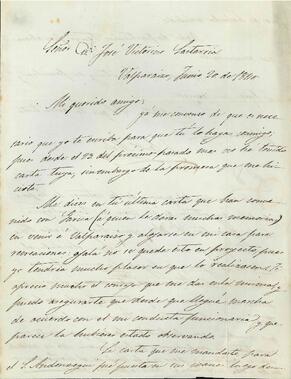 Señor Dn José Victorino Lastarria
Valparaíso, Junio 20 de 1840
Mi querido amigo;
ya me convenzo de que es nece
sario que yo te escriba para que tú lo hagas conmigo,
pues desde el 23 del próximo pasado mes no he tenido
carta tuya, sin embargo de la promesa que me hi
ciste.
Me dices en tu última carta que han conve
nido con García (á quien le darás muchas memorias)
en venir á Valparaíso y alojarse en mi casa para
vacaciones; ojalá no se quede esto en proyecto, pues
yo tendría mucho placer en que lo realizasen.
Aprecio mucho el consejo que me das en la misma, y
puedo asegurarte que desde que llegué marcha
de acuerdo con él mi conducta funcionaria, y que
parecía la hubiese estado observando.
La carta que me mandaste para
el S. fué puesta en su mano luego